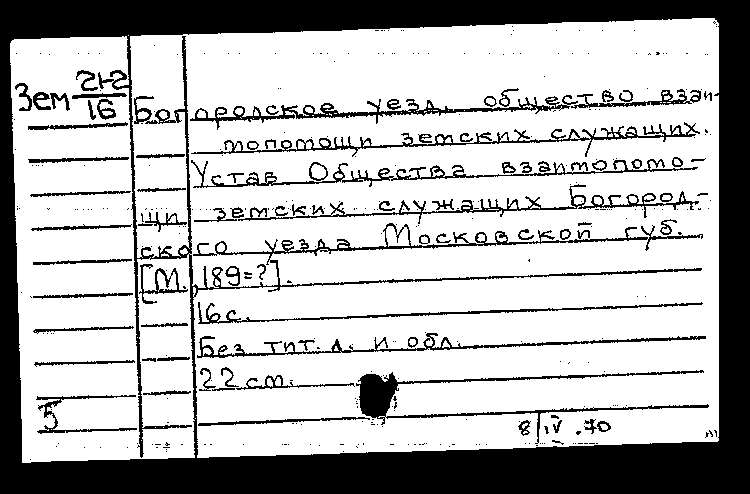 Зем 21-2
16
Богородское уезд. общество взаи-
мопомощи земских служащих.
Устав Общества взаимопомо-
щи земских служащих Богород-
ского уезда Московской губ.
[М., 189=?].
16 с.
Без тит. л. и обл.
22 см.
5
8/IV.70